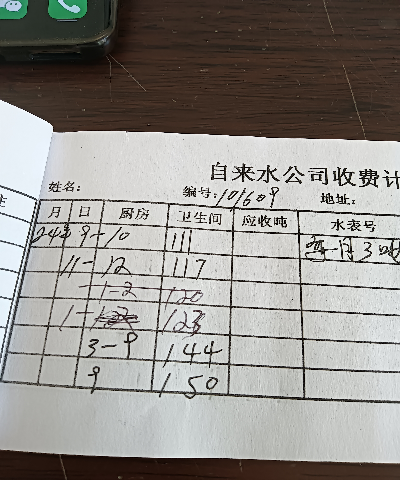 自来水公司收费计
姓名: 编号: 101609 地址:
月 日 厨房 卫生间 应收吨 水表号
24年 9-10 111 每月3吨
11-12 117
1-2 120
1- 123
3-9 144
9 150